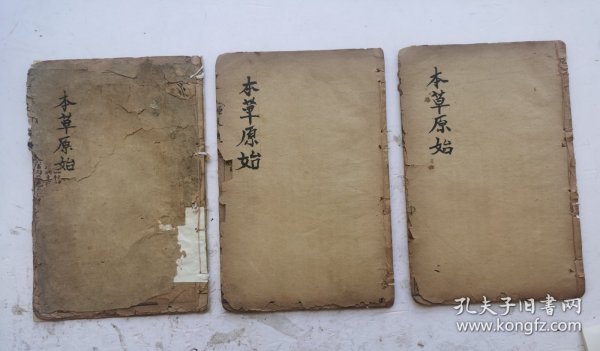 本草原始
本草原始
本草原始
孔夫子旧書网
www.kongfz.com